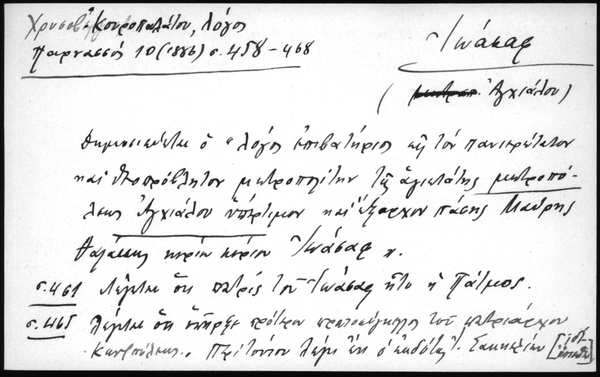 Κουροπαλάτου, λόγος
Παρνασσός 10 (1886) σ. 458-468
Ἰωάσαφ
(μητροπ. Ἀγχιάλου)
Δημοσιεύεται ὁ "λόγος ἐπιβατήριος εἰς τὸν πανιερώτατον
καὶ θεοπρόβλητον μητροπολίτην τῆς ἁγιωτάτης μητροπό-
λεως Ἀγχιάλου ὑπέρτιμον καὶ ἔξαρχον πάσης Μαύρης
θαλάσσης κύριον κύριον Ἰωάσαφ".
σ. 461 Λέγεται ὅτι πατρὶς τοῦ Ἰωάσαφ ἦτο ἡ Πάτμος.
σ. 465 Λέγεται ὅτι ὑπῆρξε πρότερον πρωτοσύγκελλος τοῦ πατριάρχου
Κων)πόλεως. Περὶ τούτου λέγει ὁ ἐκδότης Ἰ. Σακκελίων